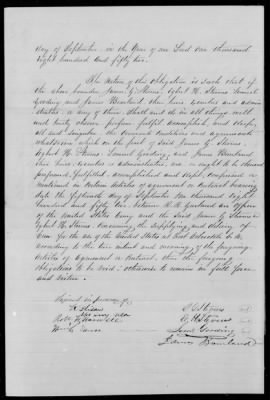 day of September in the Year of our Lord one thousand
eight hundred and fifty two.
The Nature of this Obligation is such that if
the above bounden James G. Stevens, Egbert H. Stevens Samuel
Gooding and James Bourland their heirs, executors and admin-
istrators or any of them shall and do in all things well
and truly observe, perform, fulfil, accomplish and keep,
all and singular the covenants conditions and agreements
whatsoever which on the part of said James G. Stevens,
Egbert H. Stevens, Samuel Gooding, and James Bourland
their heirs, executors or administrators are or ought to be observed
performed, fulfilled, accomplished and kept, comprised or
mentioned in certain Articles of agreement or contract bearing
date the fifteenth day of September one thousand eight
hundred and fifty two, between an Officer
of the United States Army and the said James G. Stevens
Egbert H. Stevens, concerning the supplying and delivery of
for the use of the United States at
according to the true intent and meaning of the foregoing
Articles of Agreement or contract, then the foregoing
Obligation to be void: otherwise to remain in full force
and virtue.
Signed in presence of
James Bourland